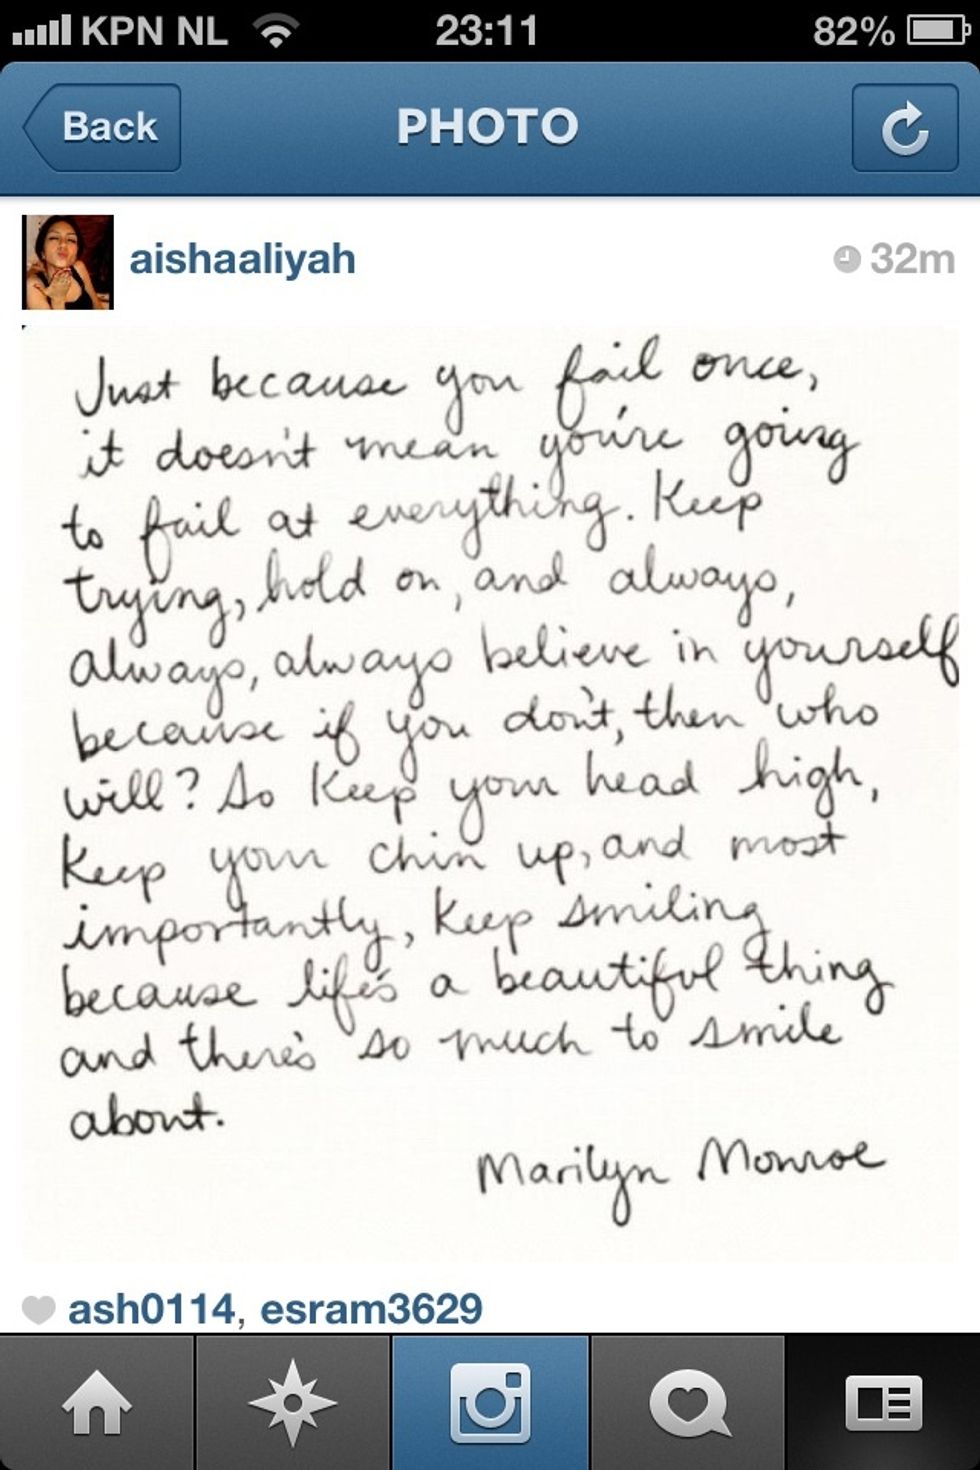 KPN NL 23:11 82%
Back PHOTO
aishaaliyah 32m
Just because you fail once,
it doesn't mean you're going
to fail at everything. Keep
trying, hold on, and always,
always, always believe in yourself
because if you don't, then who
will? So Keep your head high,
Keep your chin up, and most
importantly, Keep smiling
because life's a beautiful thing
and there's so much to smile
about.
Marilyn Monroe
ash0114, esram3629